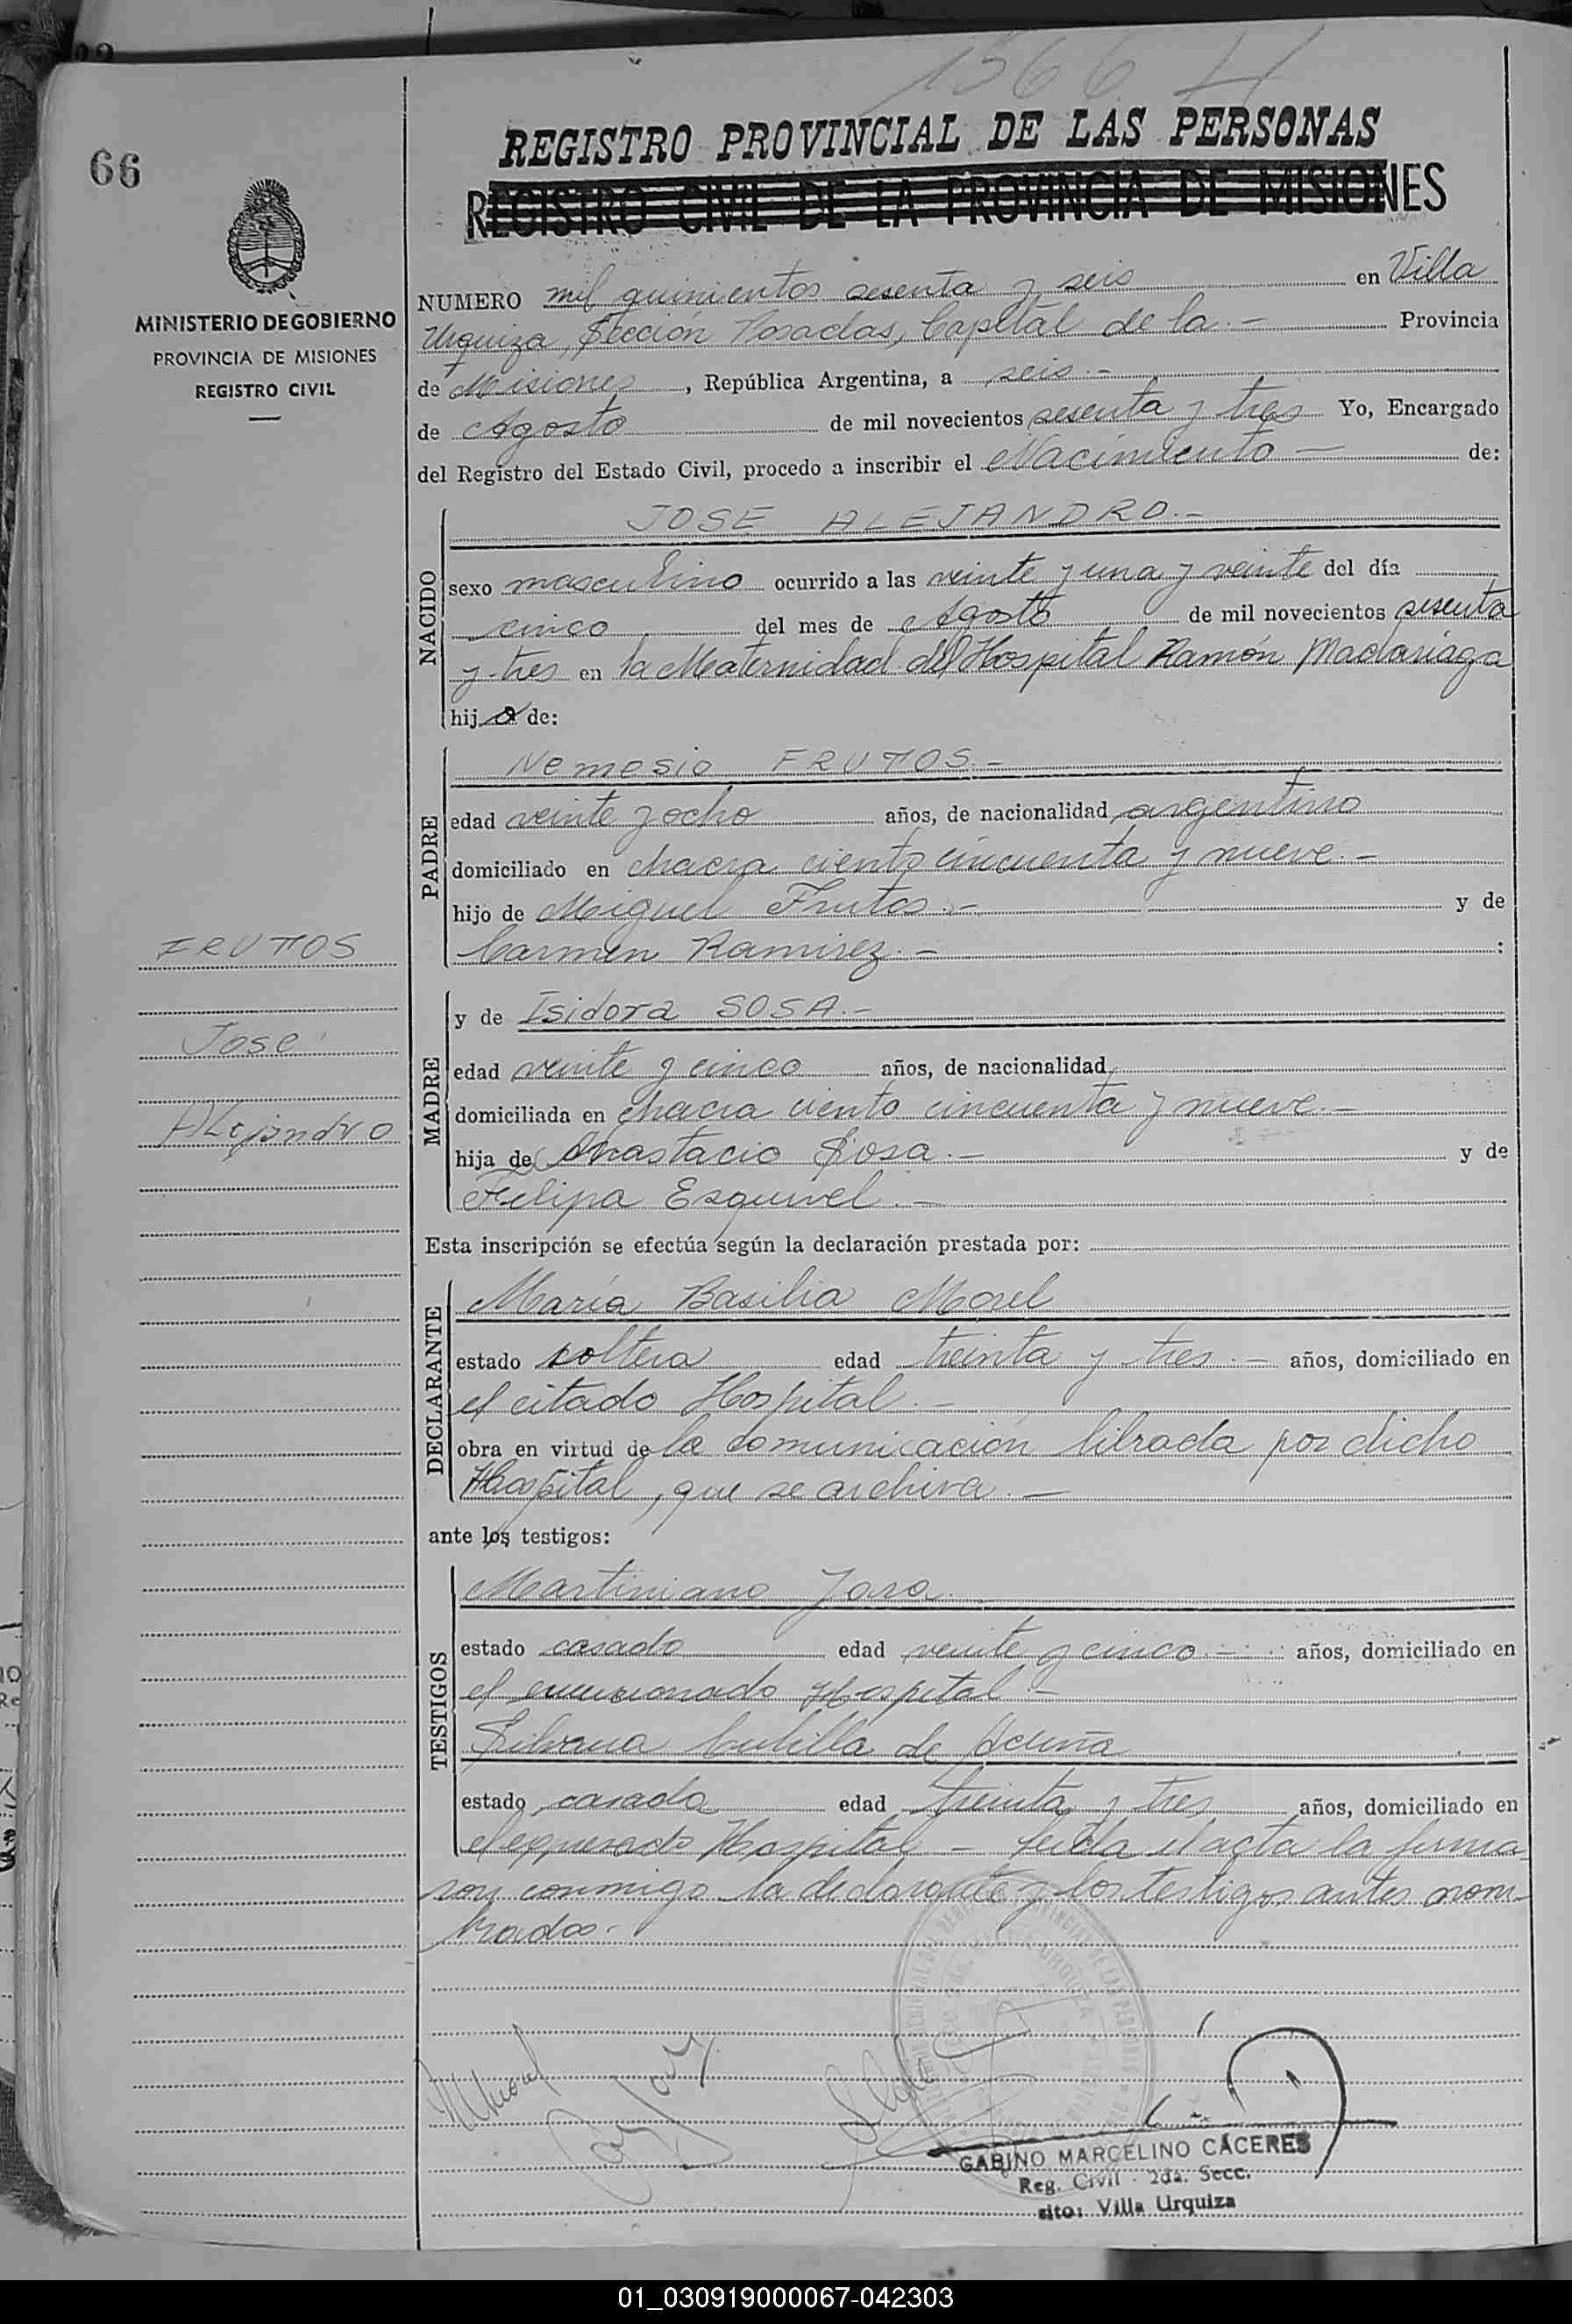 1566 H
66
REGISTRO PROVINCIAL DE LAS PERSONAS
REGISTRO CIVIL DE LA PROVINCIA DE MISIONES
MINISTERIO DE GOBIERNO
PROVINCIA DE MISIONES
REGISTRO CIVIL
NUMERO mil quinientos sesenta y seis en Villa
Urquiza, Sección Posadas, Capital de la.- Provincia
de Misiones, República Argentina, a seis.-
de Agosto de mil novecientos sesenta y tres Yo, Encargado
del Registro del Estado Civil, procedo a inscribir el Nacimiento - de:
NACIDO
JOSE ALEJANDRO.-
sexo masculino ocurrido a las veinte y una y veinte del día
cinco del mes de Agosto de mil novecientos sesenta
y tres en la Maternidad del Hospital Ramón Madariaga
hijo de:
PADRE
Nemesio FRUTOS.-
edad veinte y ocho años, de nacionalidad argentino
domiciliado en chacra ciento cincuenta y nueve.-
hijo de Miguel Frutos.- y de
Carmen Ramirez.- :
FRUTOS
Jose
Alejandro
MADRE
y de Isidora SOSA.-
edad veinte y cinco años, de nacionalidad
domiciliada en chacra ciento cincuenta y nueve.-
hija de Anastacio Sosa.- y de
Felipa Esquivel.-
Esta inscripción se efectúa según la declaración prestada por:
DECLARANTE
María Basilia Morel
estado soltera edad treinta y tres.- años, domiciliado en
el citado Hospital.-
obra en virtud de la comunicación librada por dicho
Hospital, que se archiva.-
ante los testigos:
TESTIGOS
Martiniano Jara
estado casado edad veinte y cinco.- años, domiciliado en
el mencionado Hospital -
Silvana Cubilla de Acuña
estado casada edad treinta y tres años, domiciliado en
el expresado Hospital - Leída el acta la firma
ron conmigo la declarante y los testigos antes nom-
brados.-
GABINO MARCELINO CÁCERES
Reg. Civil - 2da. Secc.
sito: Villa Urquiza
01_030919000067-042303